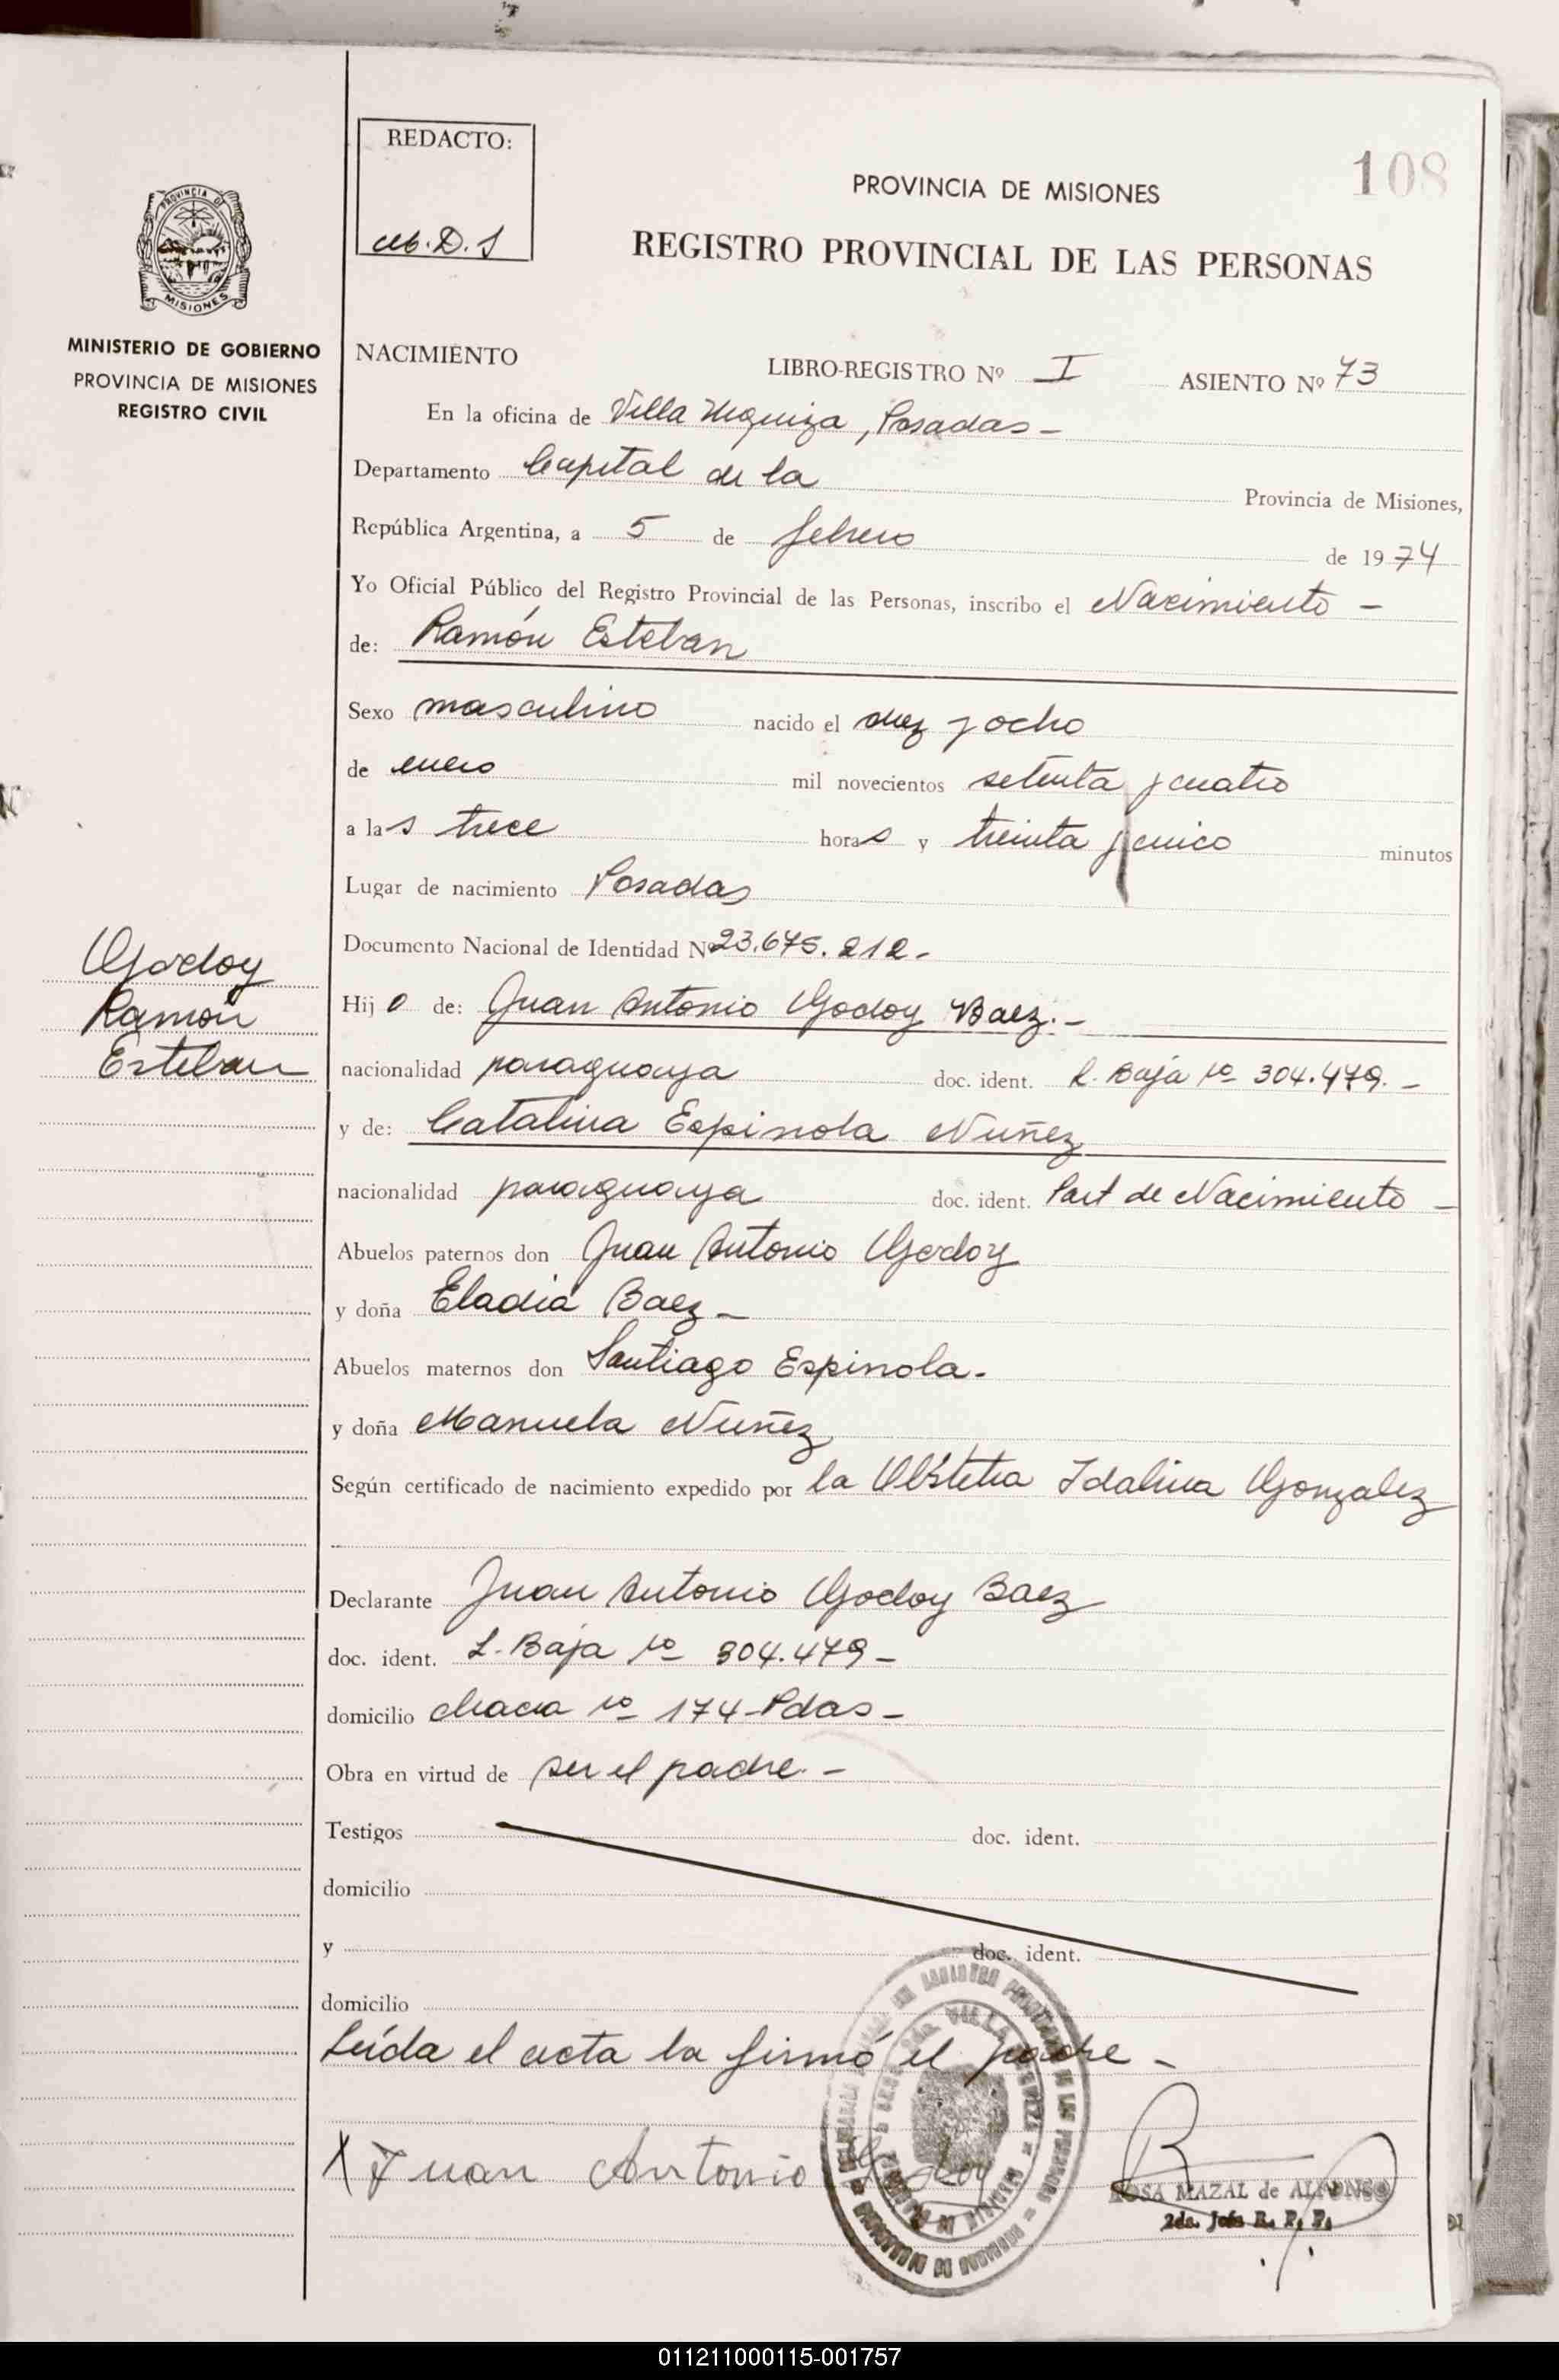 108
REDACTO:
PROVINCIA DE MISIONES
REGISTRO PROVINCIAL DE LAS PERSONAS
PROVINCIA DE
MISIONES
MINISTERIO DE GOBIERNO
PROVINCIA DE MISIONES
REGISTRO CIVIL
NACIMIENTO LIBRO-REGISTRO Nº I ASIENTO Nº 73
En la oficina de Villa Urquiza, Posadas -
Departamento Capital de la Provincia de Misiones,
República Argentina, a 5 de febrero de 1974
Yo Oficial Público del Registro Provincial de las Personas, inscribo el Nacimiento -
de: Ramón Esteban
Sexo masculino nacido el diez y ocho
de enero mil novecientos setenta y cuatro
a las trece horas y treinta y cinco minutos
Lugar de nacimiento Posadas
Documento Nacional de Identidad Nº 23.675.212.-
Godoy
Ramón
Esteban
Hijo de: Juan Antonio Godoy Baez.-
nacionalidad paraguaya doc. ident. L. Baja Nº 304.479.-
y de: Catalina Espinola Nuñez
nacionalidad paraguaya doc. ident. Part de Nacimiento -
Abuelos paternos don Juan Antonio Godoy
y doña Eladia Baez -
Abuelos maternos don Santiago Espinola.
y doña Manuela Nuñez
Según certificado de nacimiento expedido por la Obstetra Idalina Gonzalez
Declarante Juan Antonio Godoy Baez
doc. ident. L. Baja Nº 304.479 -
domicilio Chacra Nº 174 - Pdas -
Obra en virtud de ser el padre. -
Testigos doc. ident.
domicilio
y doc. ident.
domicilio
Leída el acta la firmó el padre -
X Juan Antonio Godoy
ROSA MAZAL de ALFONSO
2da. Jefa R. P. P.
011211000115-001757